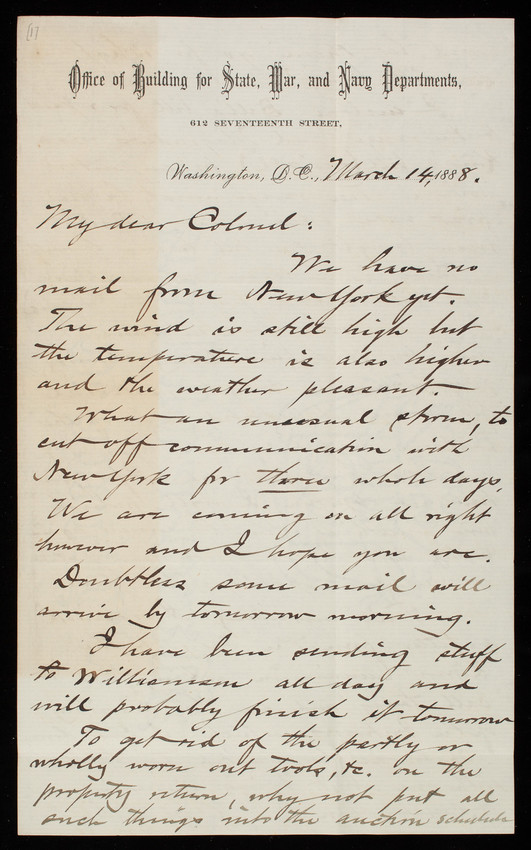 [1]
Office of Building for State, War, and Navy Departments,
612 SEVENTEENTH STREET,
Washington, D.C., March 14, 1888.
My dear Colonel:
We have no
mail from New York yet.
The wind is still high but
the temperature is also higher
and the weather pleasant.
What an unusual storm, to
cut off communication with
New York for three whole days.
We are coming on all right
however and I hope you are.
Doubtless some mail will
arrive by tomorrow morning.
I have been sending stuff
to Williamson all day and
will probably finish it tomorrow
To get rid of the partly or
wholly worn out tools, &c. on the
property return, why not put all
such things into the auction schedule